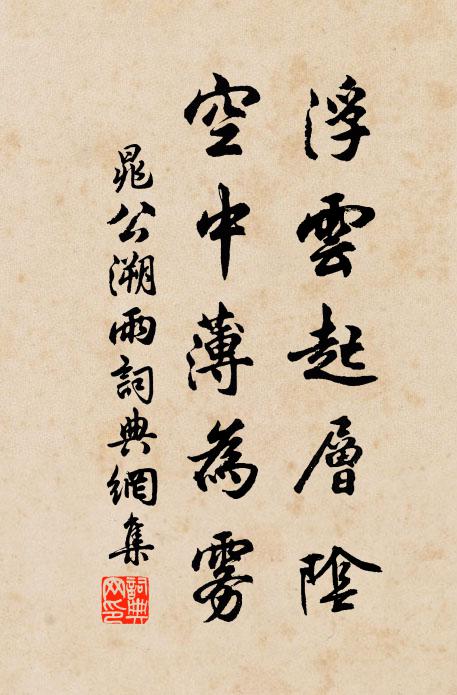 浮雲起層陰
空中薄為雾
晁公溯雨詞典網集
詞典